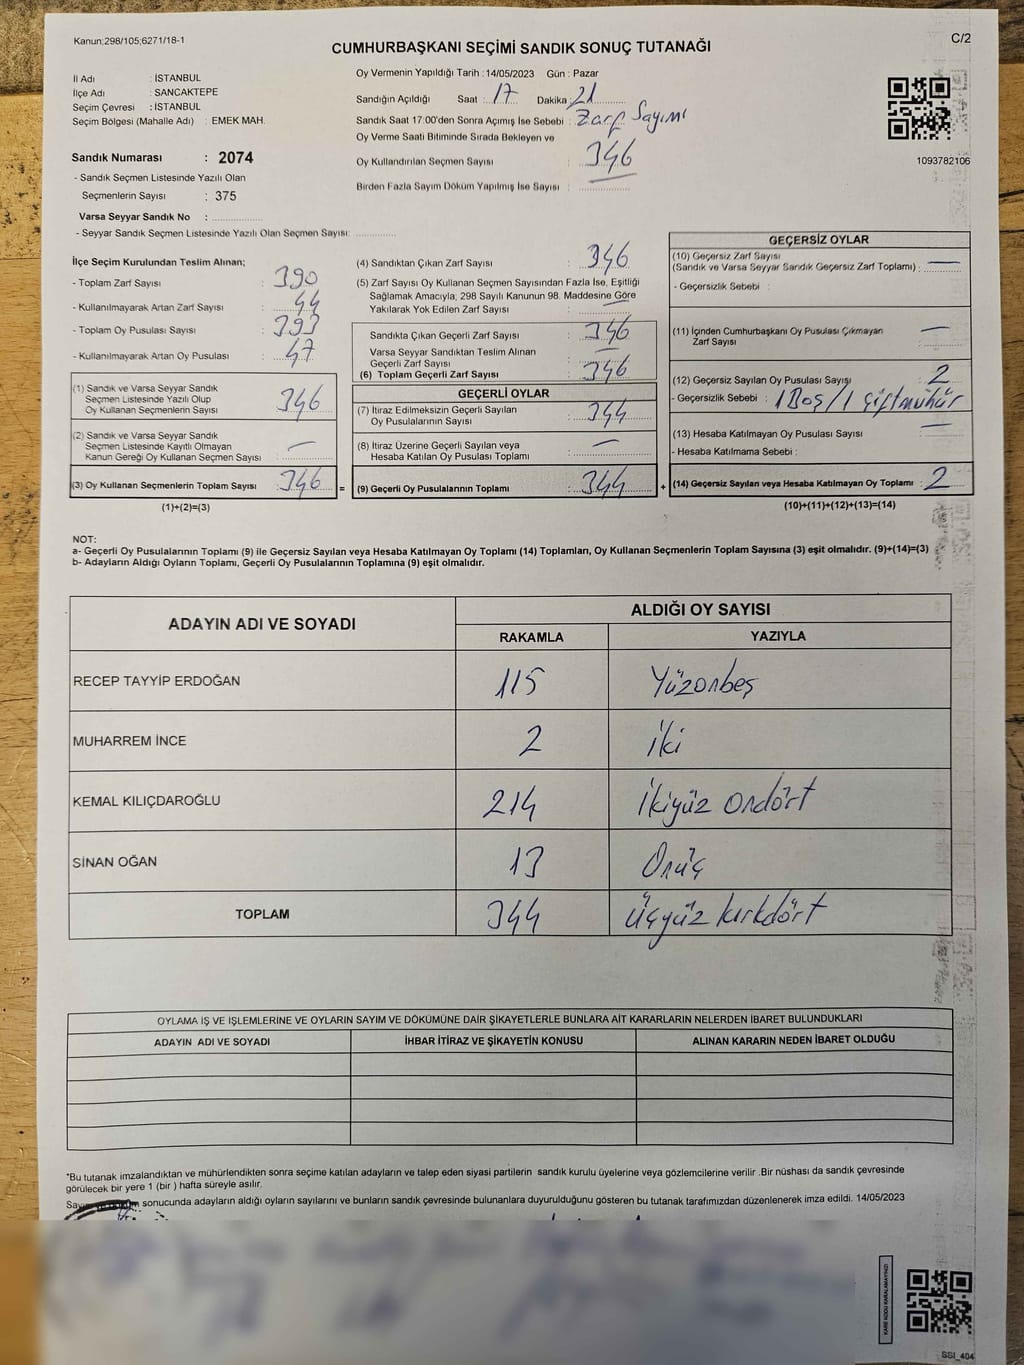 Kanun:298/105;6271/18-1
C/2
CUMHURBAŞKANI SEÇİMİ SANDIK SONUÇ TUTANAĞI
İl Adı : İSTANBUL
İlçe Adı : SANCAKTEPE
Seçim Çevresi : İSTANBUL
Seçim Bölgesi (Mahalle Adı) : EMEK MAH.
Sandık Numarası : 2074
- Sandık Seçmen Listesinde Yazılı Olan
Seçmenlerin Sayısı : 375
Varsa Seyyar Sandık No :
- Seyyar Sandık Seçmen Listesinde Yazılı Olan Seçmen Sayısı:
Oy Vermenin Yapıldığı Tarih :14/05/2023 Gün : Pazar
Sandığın Açıldığı Saat : 17 Dakika : 21
Sandık Saat 17:00'den Sonra Açımış İse Sebebi : Zarf Sayımı
Oy Verme Saati Bitiminde Sırada Bekleyen ve
Oy Kullandırılan Seçmen Sayısı : 346
Birden Fazla Sayım Döküm Yapılmış İse Sayısı :
1093782106
İlçe Seçim Kurulundan Teslim Alınan;
- Toplam Zarf Sayısı : 390
- Kullanılmayarak Artan Zarf Sayısı : 44
- Toplam Oy Pusulası Sayısı : 393
- Kullanılmayarak Artan Oy Pusulası : 47
(1) Sandık ve Varsa Seyyar Sandık
Seçmen Listesinde Yazılı Olup
Oy Kullanan Seçmenlerin Sayısı : 346
(2) Sandık ve Varsa Seyyar Sandık
Seçmen Listesinde Kayıtlı Olmayan
Kanun Gereği Oy Kullanan Seçmen Sayısı : —
(3) Oy Kullanan Seçmenlerin Toplam Sayısı : 346
(1)+(2)=(3)
=
(4) Sandıktan Çıkan Zarf Sayısı : 346
(5) Zarf Sayısı Oy Kullanan Seçmen Sayısından Fazla İse, Eşitliği
Sağlamak Amacıyla; 298 Sayılı Kanunun 98. Maddesine Göre
Yakılarak Yok Edilen Zarf Sayısı : —
Sandıkta Çıkan Geçerli Zarf Sayısı : 346
Varsa Seyyar Sandıktan Teslim Alınan
Geçerli Zarf Sayısı : —
(6) Toplam Geçerli Zarf Sayısı : 346
GEÇERLİ OYLAR
(7) İtiraz Edilmeksizin Geçerli Sayılan
Oy Pusulalarının Sayısı : 344
(8) İtiraz Üzerine Geçerli Sayılan veya
Hesaba Katılan Oy Pusulası Toplamı : —
(9) Geçerli Oy Pusulalarının Toplamı : 344
+
GEÇERSİZ OYLAR
(10) Geçersiz Zarf Sayısı
(Sandık ve Varsa Seyyar Sandık Geçersiz Zarf Toplamı) : —
- Geçersizlik Sebebi :
(11) İçinden Cumhurbaşkanı Oy Pusulası Çıkmayan
Zarf Sayısı : —
(12) Geçersiz Sayılan Oy Pusulası Sayısı : 2
- Geçersizlik Sebebi : 1 Boş / 1 çiftmühür
(13) Hesaba Katılmayan Oy Pusulası Sayısı : —
- Hesaba Katılmama Sebebi :
(14) Geçersiz Sayılan veya Hesaba Katılmayan Oy Toplamı : 2
(10)+(11)+(12)+(13)=(14)
NOT:
a- Geçerli Oy Pusulalarının Toplamı (9) ile Geçersiz Sayılan veya Hesaba Katılmayan Oy Toplamı (14) Toplamları, Oy Kullanan Seçmenlerin Toplam Sayısına (3) eşit olmalıdır. (9)+(14)=(3)
b- Adayların Aldığı Oyların Toplamı, Geçerli Oy Pusulalarının Toplamına (9) eşit olmalıdır.
ADAYIN ADI VE SOYADI
ALDIĞI OY SAYISI
RAKAMLA YAZIYLA
RECEP TAYYİP ERDOĞAN 115 Yüzonbeş
MUHARREM İNCE 2 iki
KEMAL KILIÇDAROĞLU 214 İkiyüz ondört
SİNAN OĞAN 13 Onüç
TOPLAM 344 üçyüz kırkdört
OYLAMA İŞ VE İŞLEMLERİNE VE OYLARIN SAYIM VE DÖKÜMÜNE DAİR ŞİKAYETLERLE BUNLARA AİT KARARLARIN NELERDEN İBARET BULUNDUKLARI
ADAYIN ADI VE SOYADI İHBAR İTİRAZ VE ŞİKAYETİN KONUSU ALINAN KARARIN NEDEN İBARET OLDUĞU
*Bu tutanak imzalandıktan ve mühürlendikten sonra seçime katılan adayların ve talep eden siyasi partilerin sandık kurulu üyelerine veya gözlemcilerine verilir .Bir nüshası da sandık çevresinde
görülecek bir yere 1 (bir ) hafta süreyle asılır.
sonucunda adayların aldığı oyların sayılarını ve bunların sandık çevresinde bulunanlara duyurulduğunu gösteren bu tutanak tarafımızdan düzenlenerek imza edildi. 14/05/2023
KARE KODU KARALAMAYINIZ!
SSI_404